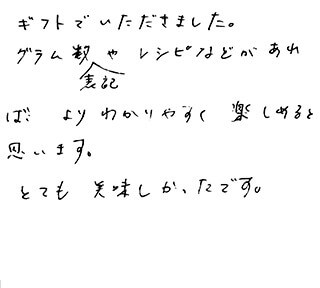 ギフトでいただきました。
グラム数表記やレシピなどがあれ
ば、よりわかりやすく楽しめると
思います。
とても美味しかったです。